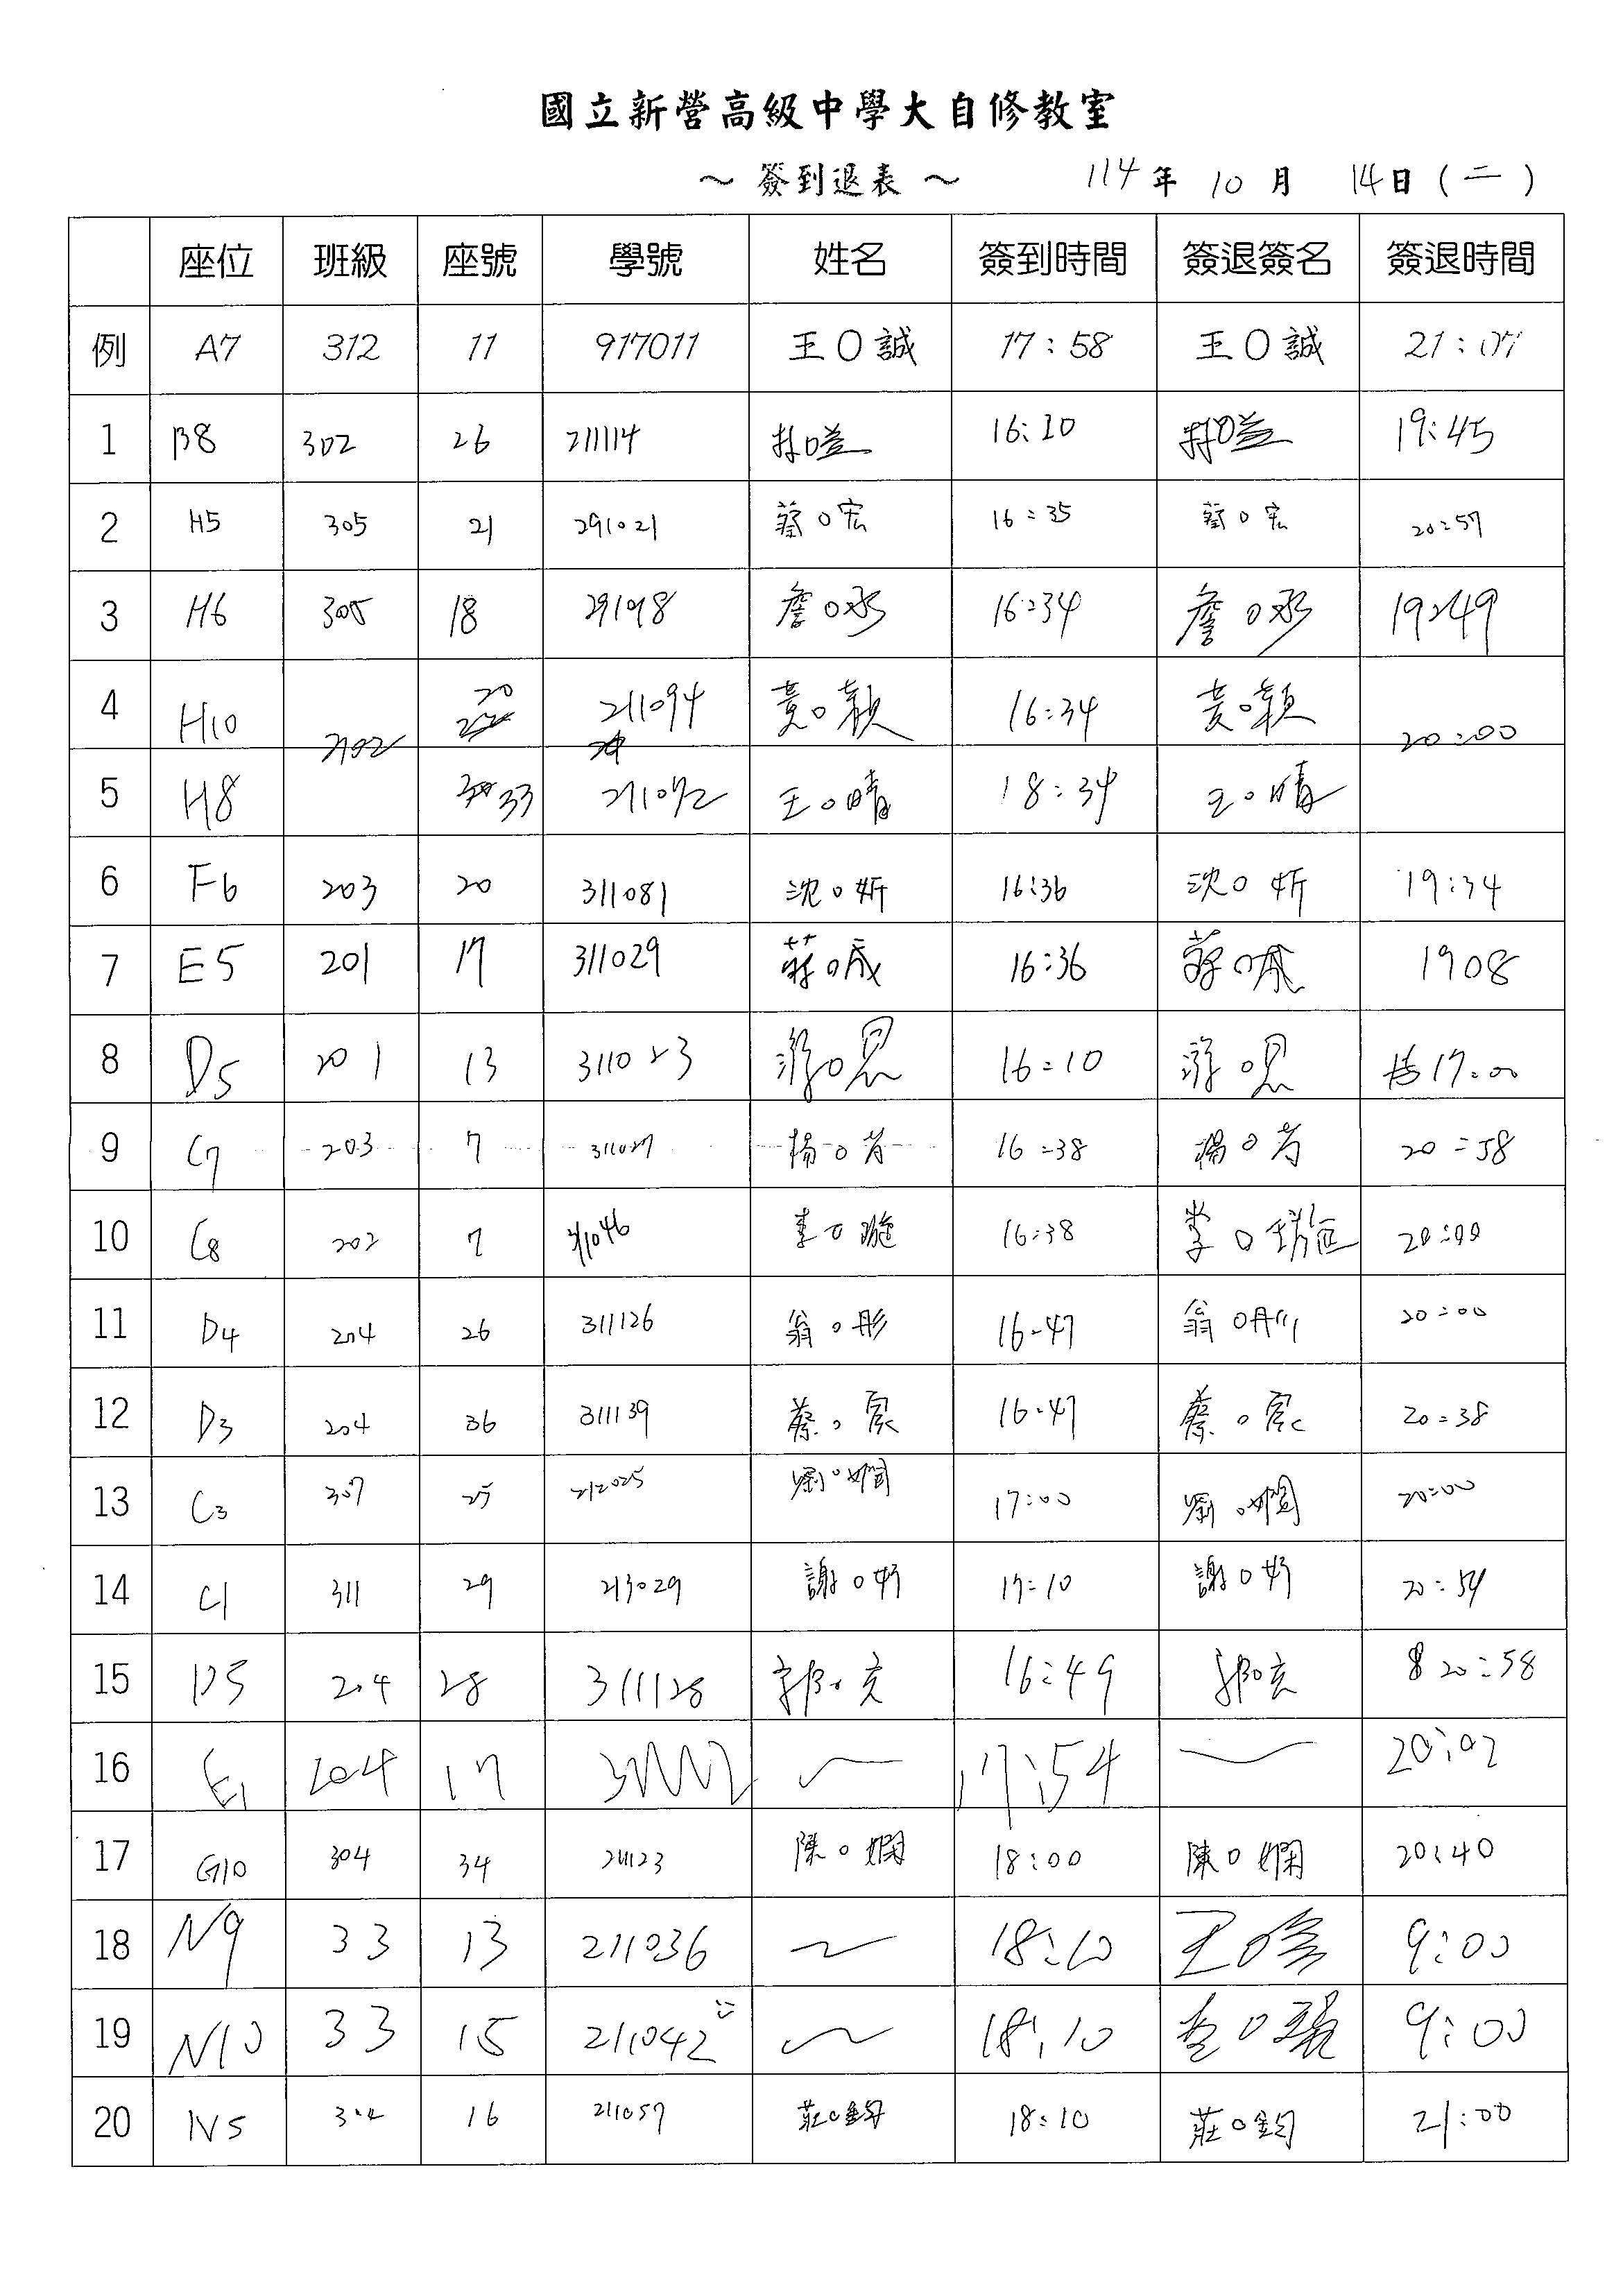 國立新營高級中學大自修教室
～ 簽到退表 ～ 114 年 10 月 14 日 ( 二 )
座位 班級 座號 學號 姓名 簽到時間 簽退簽名 簽退時間
例 A7 312 11 917011 王O誠 17:58 王O誠 21:07
1 B8 302 26 211114 16:20 19:45
2 H5 305 21 291021 蔡O宏 16:35 蔡O宏 20:57
3 H6 305 18 詹O丞 16:34 詹O丞 19:49
4 H10 20 211094 黃O穎 16:34 黃O穎 20:00
5 H8 33 211072 王O晴 18:34 王O晴
6 F6 203 20 311081 沈O妡 16:36 沈O妡 19:34
7 E5 201 17 311029 蔣O宬 16:36 蔣O宬 1908
8 D5 201 13 311023 游O恩 16:10 游O恩 17:00
9 C7 203 7 楊O芳 16:38 楊O芳 20:58
10 C8 202 7 311046 李O璇 16:38 李O璇 20:00
11 D4 204 26 311126 翁O彤 16:47 翁O彤 20:00
12 D3 204 36 311139 蔡O宸 16:47 蔡O宸 20:38
13 C3 307 25 212025 劉O嫺 17:00 劉O嫺 20:00
14 C1 311 29 213029 謝O妤 17:10 謝O妤 20:54
15 D5 204 28 311128 郭O亥 16:49 郭O亥 20:58
16 E1 204 17 17:54 20:02
17 G10 304 34 211123 陳O嫻 18:00 陳O嫻 20:40
18 N9 33 13 211036 18:10 王O 9:00
19 N10 33 15 211042 18:10 9:00
20 N5 304 16 211057 莊O鈞 18:10 莊O鈞 21:00